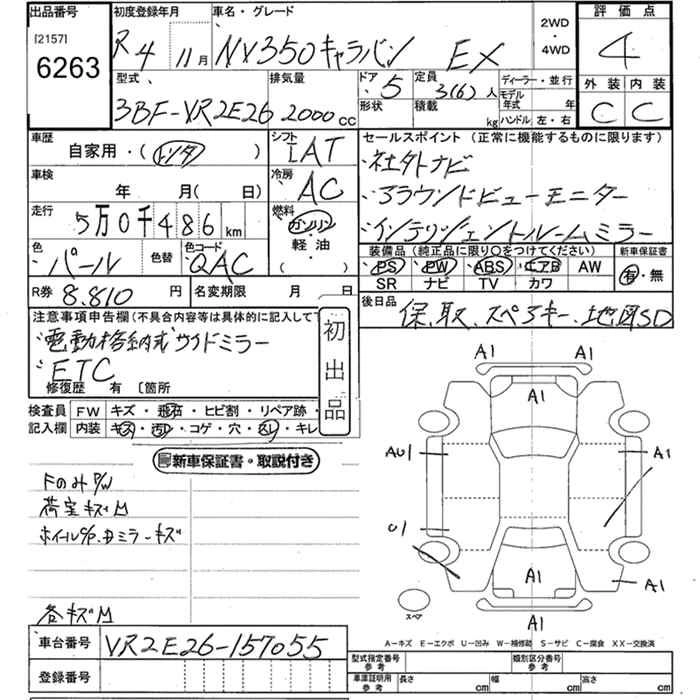 出品番号 初度登録年月 車名・グレード 2WD・4WD 評価点
[2157]
6263 R4 11月 NV350キャラバン EX 4
型式 排気量 ドア 5 定員 3(6)人 ディーラー・並行 外装 内装
3BF-VR2E26 2000cc 形状 積載 kg モデル年式 年 C C
ハンドル 左・右
車歴 自家用・( ) シフト IAT セールスポイント (正常に機能するものに限ります)
車検 年 月( 日) 冷房 AC ・社外ナビ
・アラウンドビューモニター
走行 5万0千486km 燃料 ガソリン ・インテリジェントルームミラー
軽油
・( )
色 パール 色替 色コード QAC 装備品 (純正品に限り○をつけてください) 新車保証書
PS PW ABS エアB AW 有・無
SR ナビ TV カワ
R券 8.810円 名変期限 月 日 後日品 保、取、スペアキー、地図SD
注意事項申告欄(不具合内容等は具体的に記入して下
・電動格納式サイドミラー
・ETC
修復歴 有 〔箇所
初出品
検査員 FW キズ・飛石・ヒビ割・リペア跡・
記入欄 内装 キズ・汚れ・コゲ・穴・スレ・キレ
新車保証書・取説付き
FのみP/W
荷室キズM
キズ
各キズM
A1 A1
A1
AU1 A1
U1
A1 A1
A1
スペア
A-キズ E-エクボ U-凹み W-補修跡 S-サビ C-腐食 XX-交換済
車台番号 VR2E26-157055
型式指定番号 参考 類別区分番号 参考
登録番号
車庫証明用 参考 長さ cm 幅 cm 高さ cm